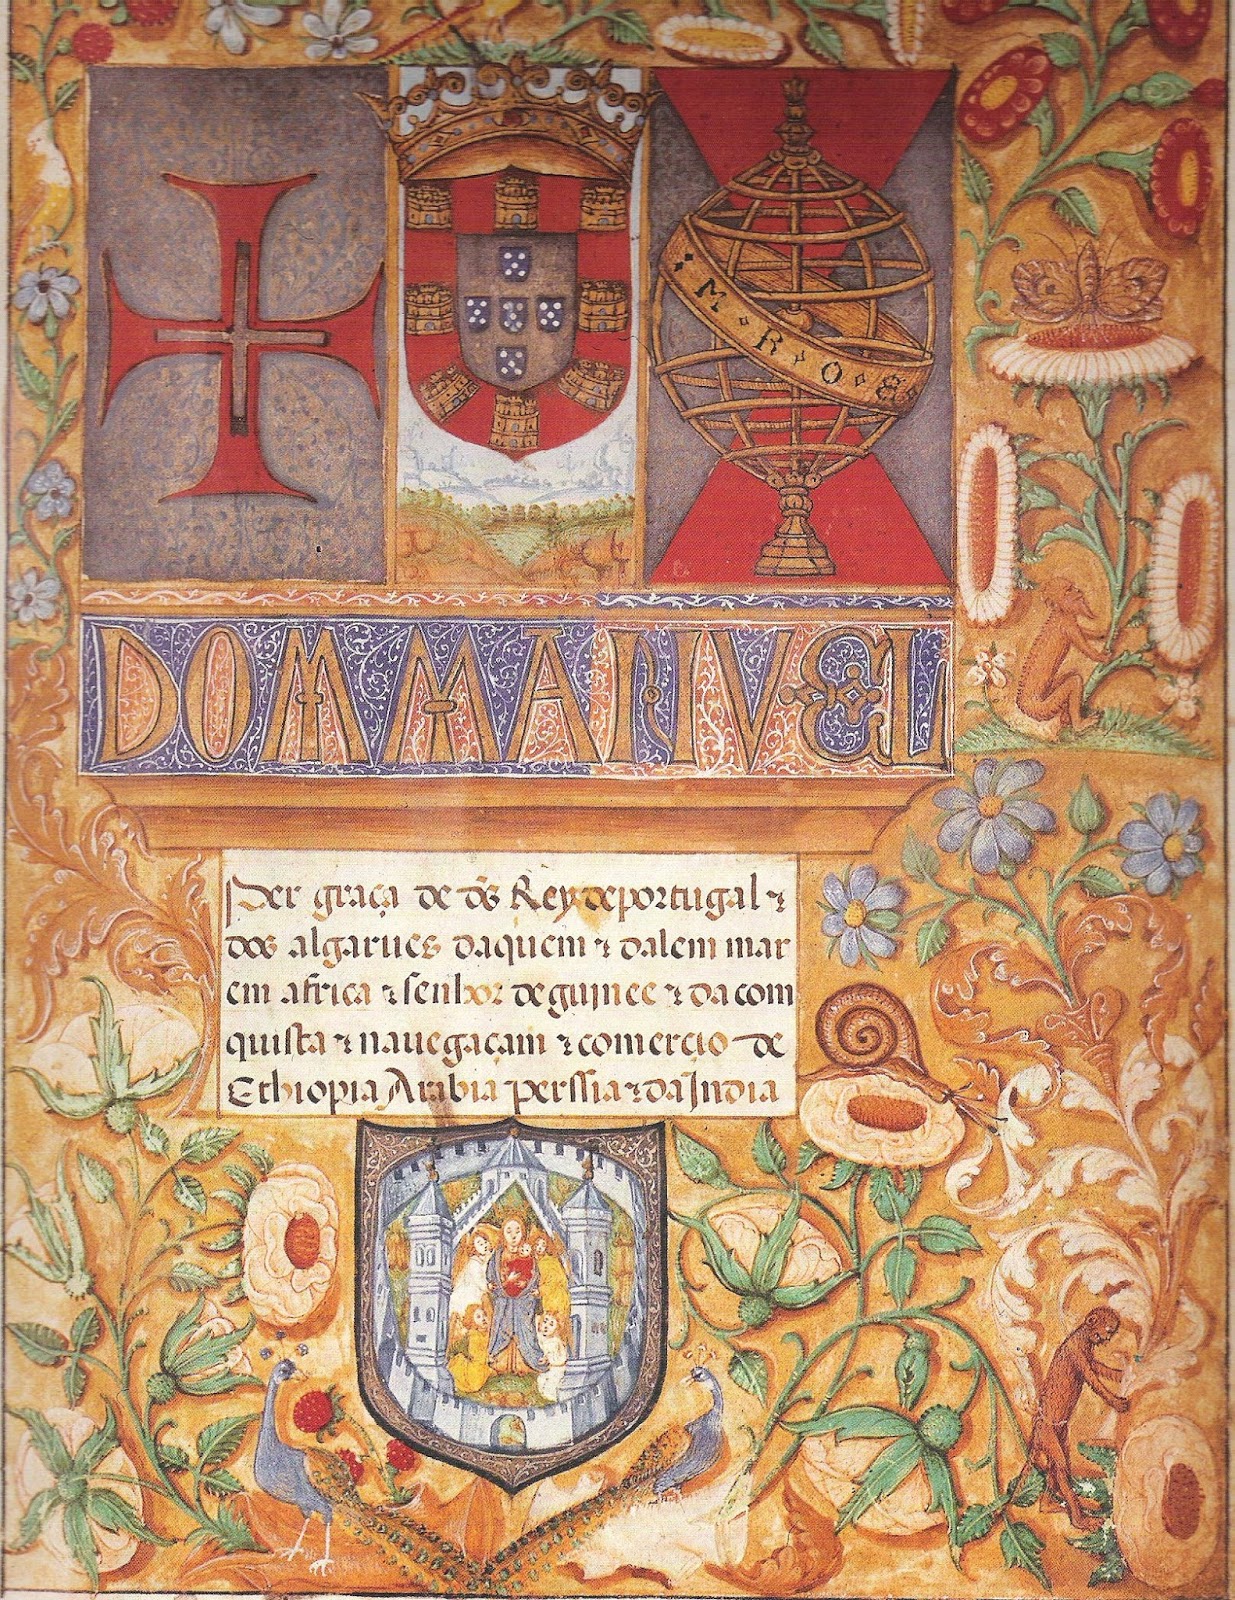 M · R · O
DOM MANVEL
Per graça de ds Rey de portugal ⁊
dos algarues daquem ⁊ dalem mar
em africa ⁊ senhor de guinee ⁊ da com
quista ⁊ nauegaçam ⁊ comercio de
Ethiopia Arabia perssia ⁊ da India